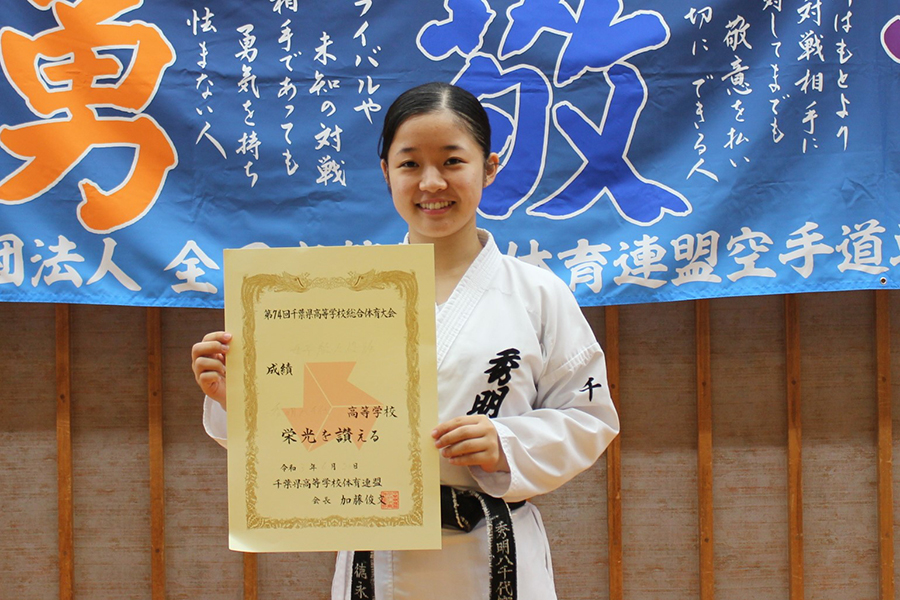 勇
ライバルや
未知の対戦
相手であっても
勇気を持ち
怯まない人
敬
はもとより
対戦相手に
対してまでも
敬意を払い
切にできる人
団法人
全
体育連盟空手道
第74回千葉県高等学校総合体育大会
成績
高等学校
栄光を讃える
令和 年 月 日
千葉県高等学校体育連盟
会長 加藤俊文
秀明
千
徳永
秀明八千代